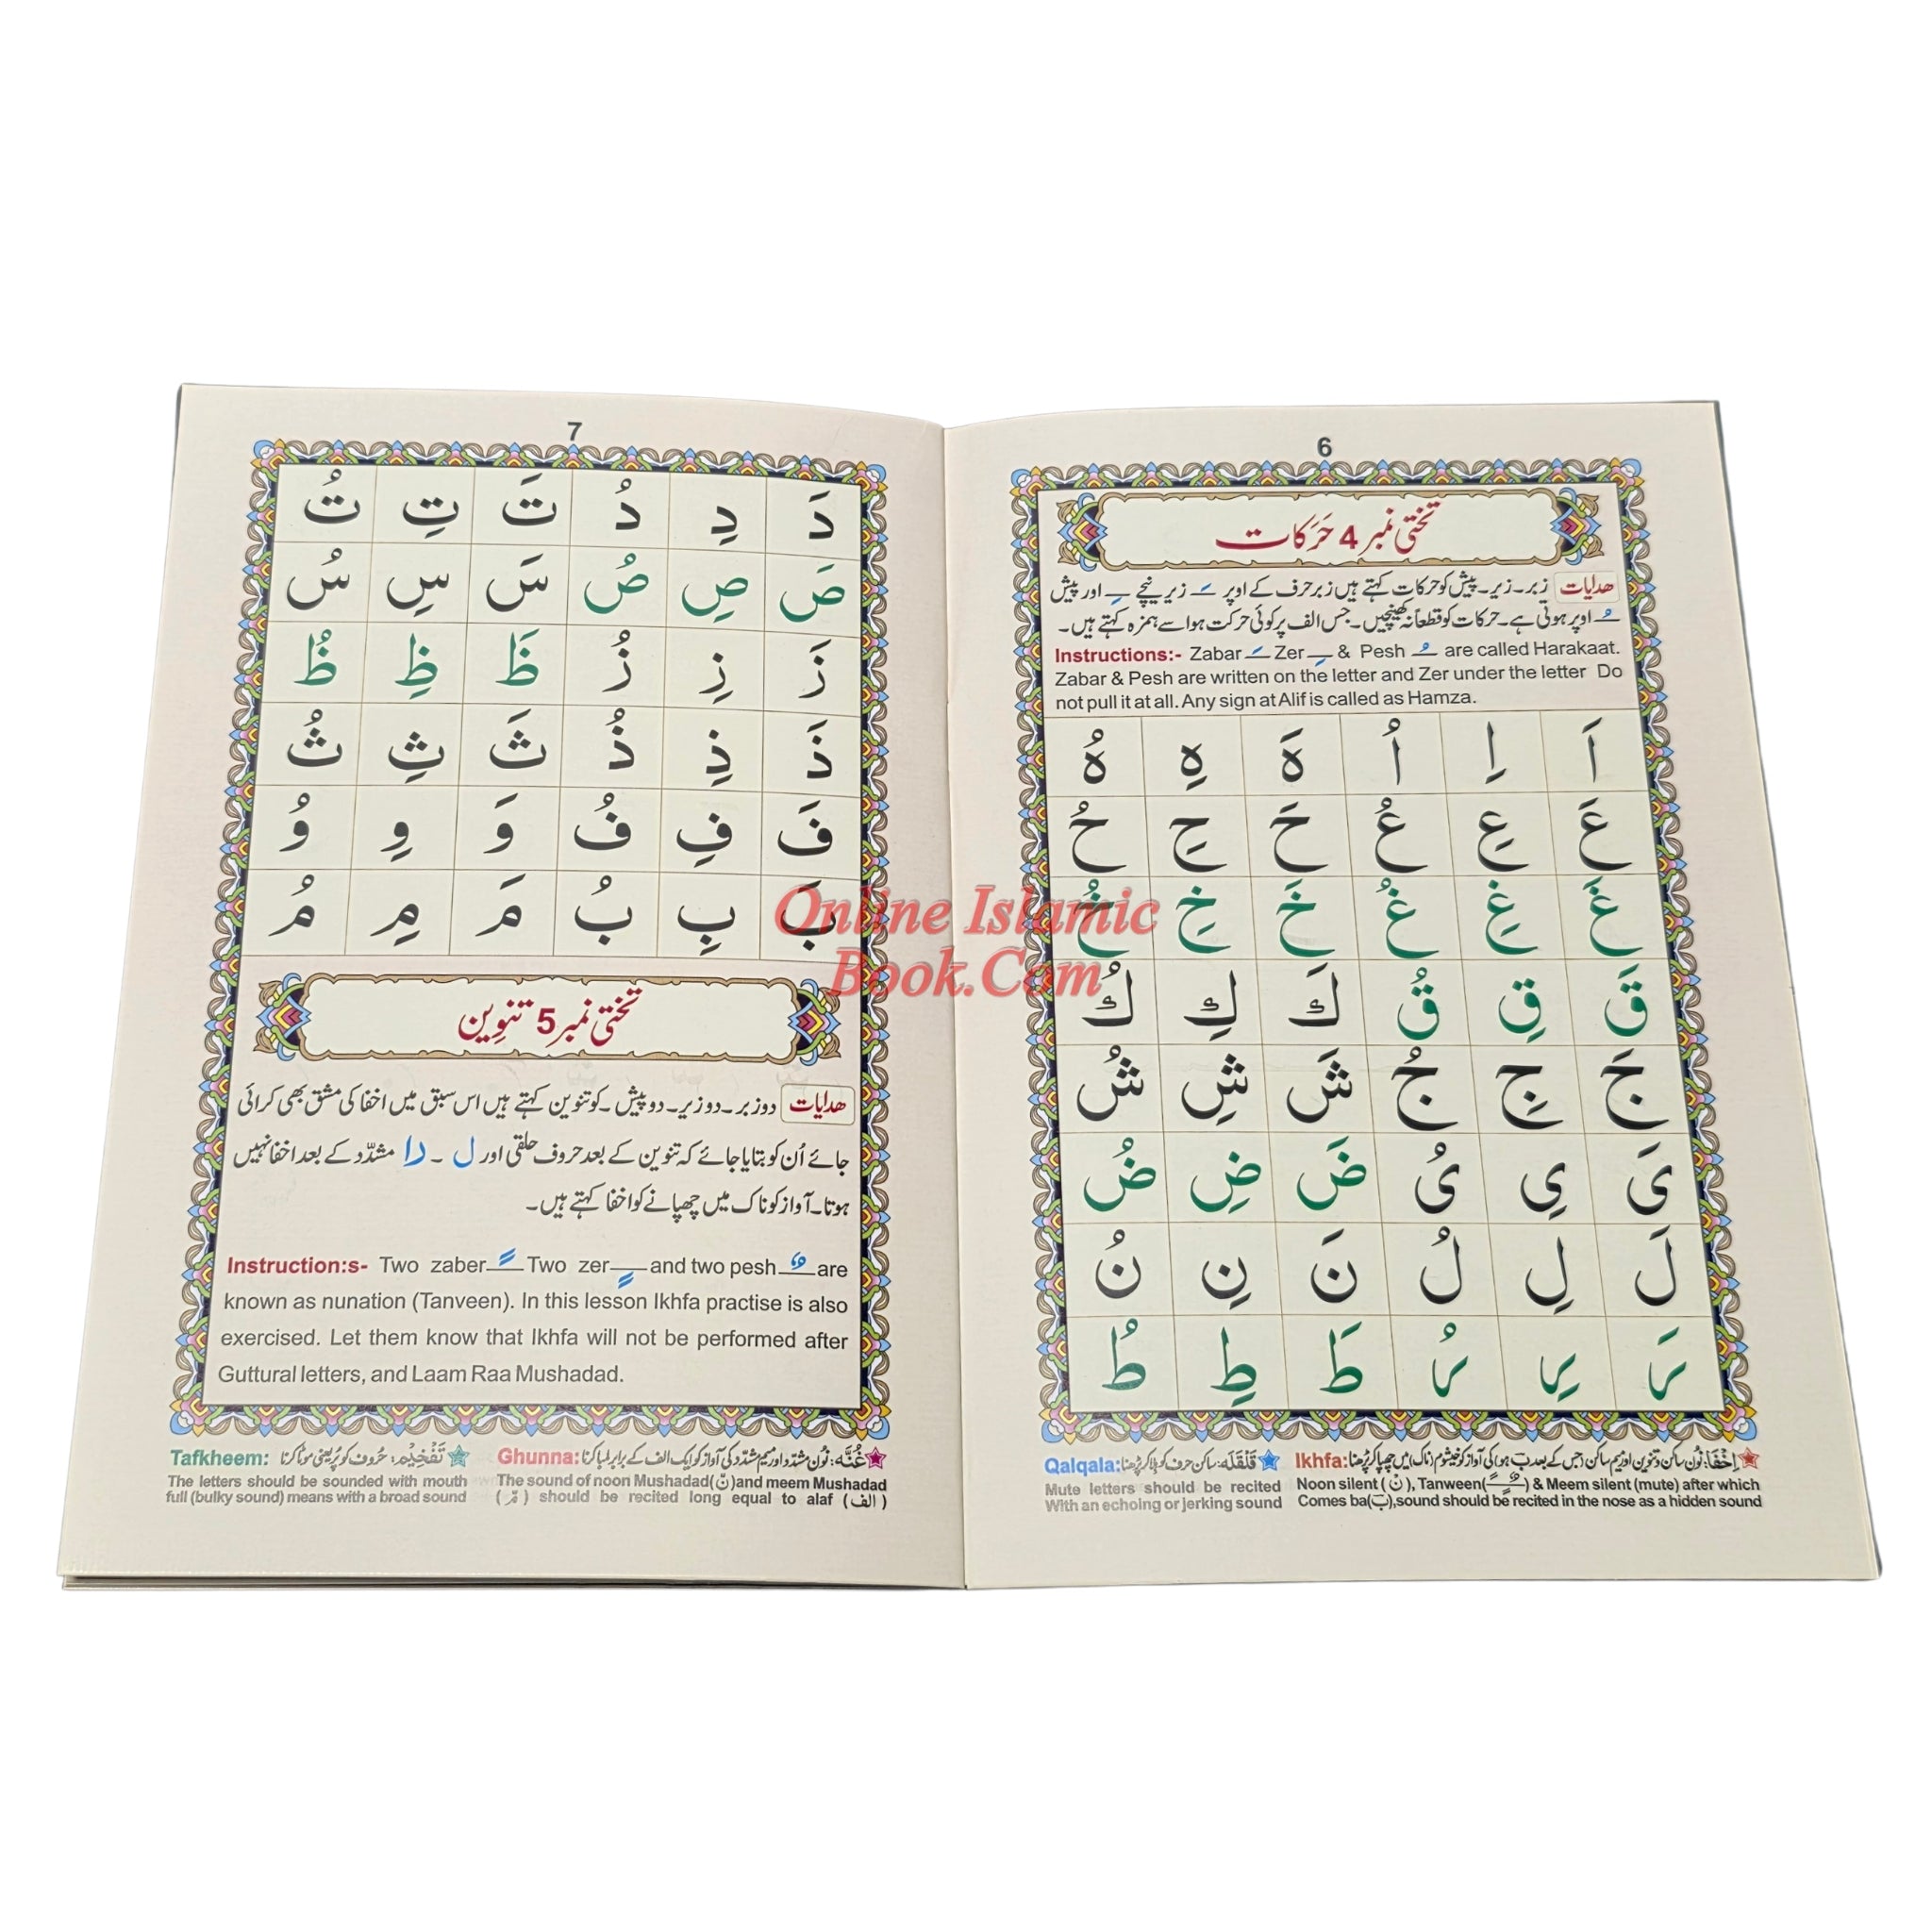 6
تختی نمبر 4 حَرَکات
ھدایات زبر۔ زیر۔ پیش کو حرکات کہتے ہیں زبر حرف کے اوپر ـَـ زیر نیچے ـِـ اور پیش
ـُـ اوپر ہوتی ہے۔ حرکات کو قطعاً نہ کھینچیں۔ جس الف پر کوئی حرکت ہو اسے ہمزہ کہتے ہیں۔
Instructions:- Zabar ـَـ Zer ـِـ & Pesh ـُـ are called Harakaat.
Zabar & Pesh are written on the letter and Zer under the letter Do
not pull it at all. Any sign at Alif is called as Hamza.
اَ اِ اُ هَ هِ هُ
عَ عِ عُ حَ حِ حُ
غَ غِ غُ خَ خِ خُ
قَ قِ قُ كَ كِ كُ
جَ جِ جُ شَ شِ شُ
یَ یِ یُ ضَ ضِ ضُ
لَ لِ لُ نَ نِ نُ
رَ رِ رُ طَ طِ طُ
اِخْفَا: نُون ساکن و تنوین اور میم ساکن (جس کے بعد بَ ہو) کی آواز کو خیشوم (ناک) میں چھپا کر پڑھنا Ikhfa:
Noon silent ( نْ ), Tanween( ـًـٍـٌ ) & Meem silent (mute) after which
Comes ba(بَ),sound should be recited in the nose as a hidden sound
قَلْقَلَه: ساکن حرف کو ہلا کر پڑھنا Qalqala:
Mute letters should be recited
With an echoing or jerking sound
7
دَ دِ دُ تَ تِ تُ
صَ صِ صُ سَ سِ سُ
زَ زِ زُ ظَ ظِ ظُ
ذَ ذِ ذُ ثَ ثِ ثُ
فَ فِ فُ وَ وِ وُ
بَ بِ بُ مَ مِ مُ
تختی نمبر 5 تنوِین
ھدایات دو زبر۔ دو زیر۔ دو پیش۔ کو تنوین کہتے ہیں اس سبق میں اخفا کی مشق بھی کرائی
جائے اُن کو بتایا جائے کہ تنوین کے بعد حروف حلقی اور ل ۔ را مشدّد کے بعد اخفا نہیں
ہوتا۔ آواز کو ناک میں چھپانے کو اخفا کہتے ہیں۔
Instruction:s- Two zaber ـًـ Two zer ـٍـ and two pesh ـٌـ are
known as nunation (Tanveen). In this lesson Ikhfa practise is also
exercised. Let them know that Ikhfa will not be performed after
Guttural letters, and Laam Raa Mushadad.
غُنَّه: نُون مشدّد اور میم مشدّد کی آواز کو ایک الف کے برابر لمبا کرنا Ghunna:
The sound of noon Mushadad(نّ)and meem Mushadad
( مّ ) should be recited long equal to alaf (الف)
تَفْخِیْم: حُروف کو پُر یعنی موٹا کرنا Tafkheem:
The letters should be sounded with mouth
full (bulky sound) means with a broad sound
Online Islamic
Book.Com